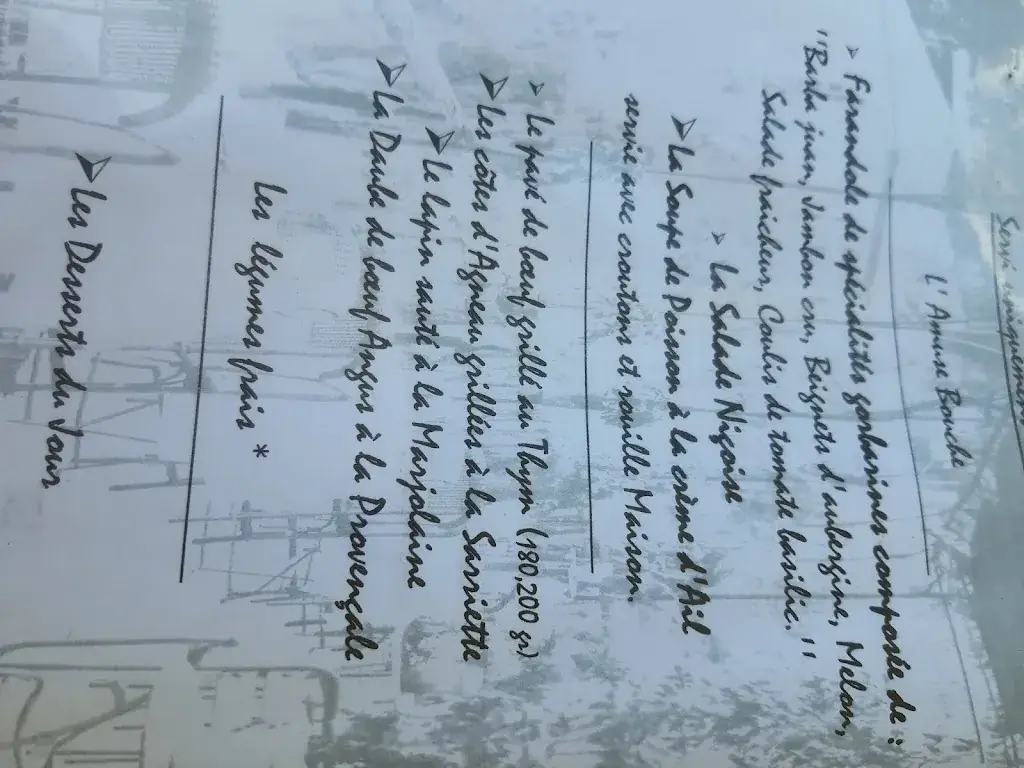 Servi uniquement
L'Amuse Bouche
➢ Farandole de spécialités gorbarines composée de :
"Barba juan, Jambon cru, Beignets d'aubergine, Melon,
Salade fraicheur, Coulis de tomate basilic."
➢ La Salade Niçoise
➢ La Soupe de Poisson à la crème d'Ail
servie avec croutons et rouille Maison.
➢ Le pavé de bœuf grillé au Thym (180,200 gr)
➢ Les côtes d'Agneau grillées à la Sarriette
➢ Le lapin sauté à la Marjolaine
➢ La Daube de bœuf Angus à la Provençale
Les légumes frais *
➢ Les Desserts du Jour